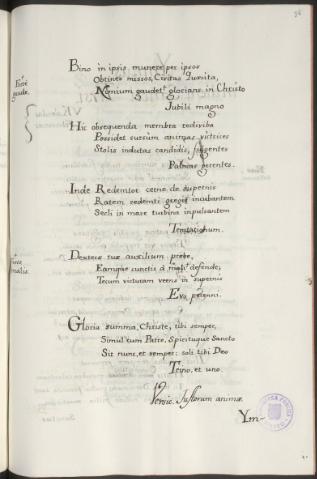 Bino in ipsis munere per ipsos
Obtines missos, Caritas
gaudet glorians in Christo
Jubili magno
Hic obsequenda membra rediviba
Possidet sursum animas victrices
Stolis indutas candidis, fulgentes
Palmas gerentes.
Inde Redemtor cerne de supernis
Ratem redemti gregis incubantem
Secli in mare turbina inpulsantem
Temtationum.
Dextera tuæ auxilium prebe,
Eamque sanctis a malis defende,
Tecum victuram vcens in supernis
Evo perenni.
Gloria summa, Christe, tibi semper,
Simul cum Patre, Spirituque Sancto
Sit nunc, et semper: soli tibi Deo
Trino, et uno.
Versic. Justorum animæ
Ym-